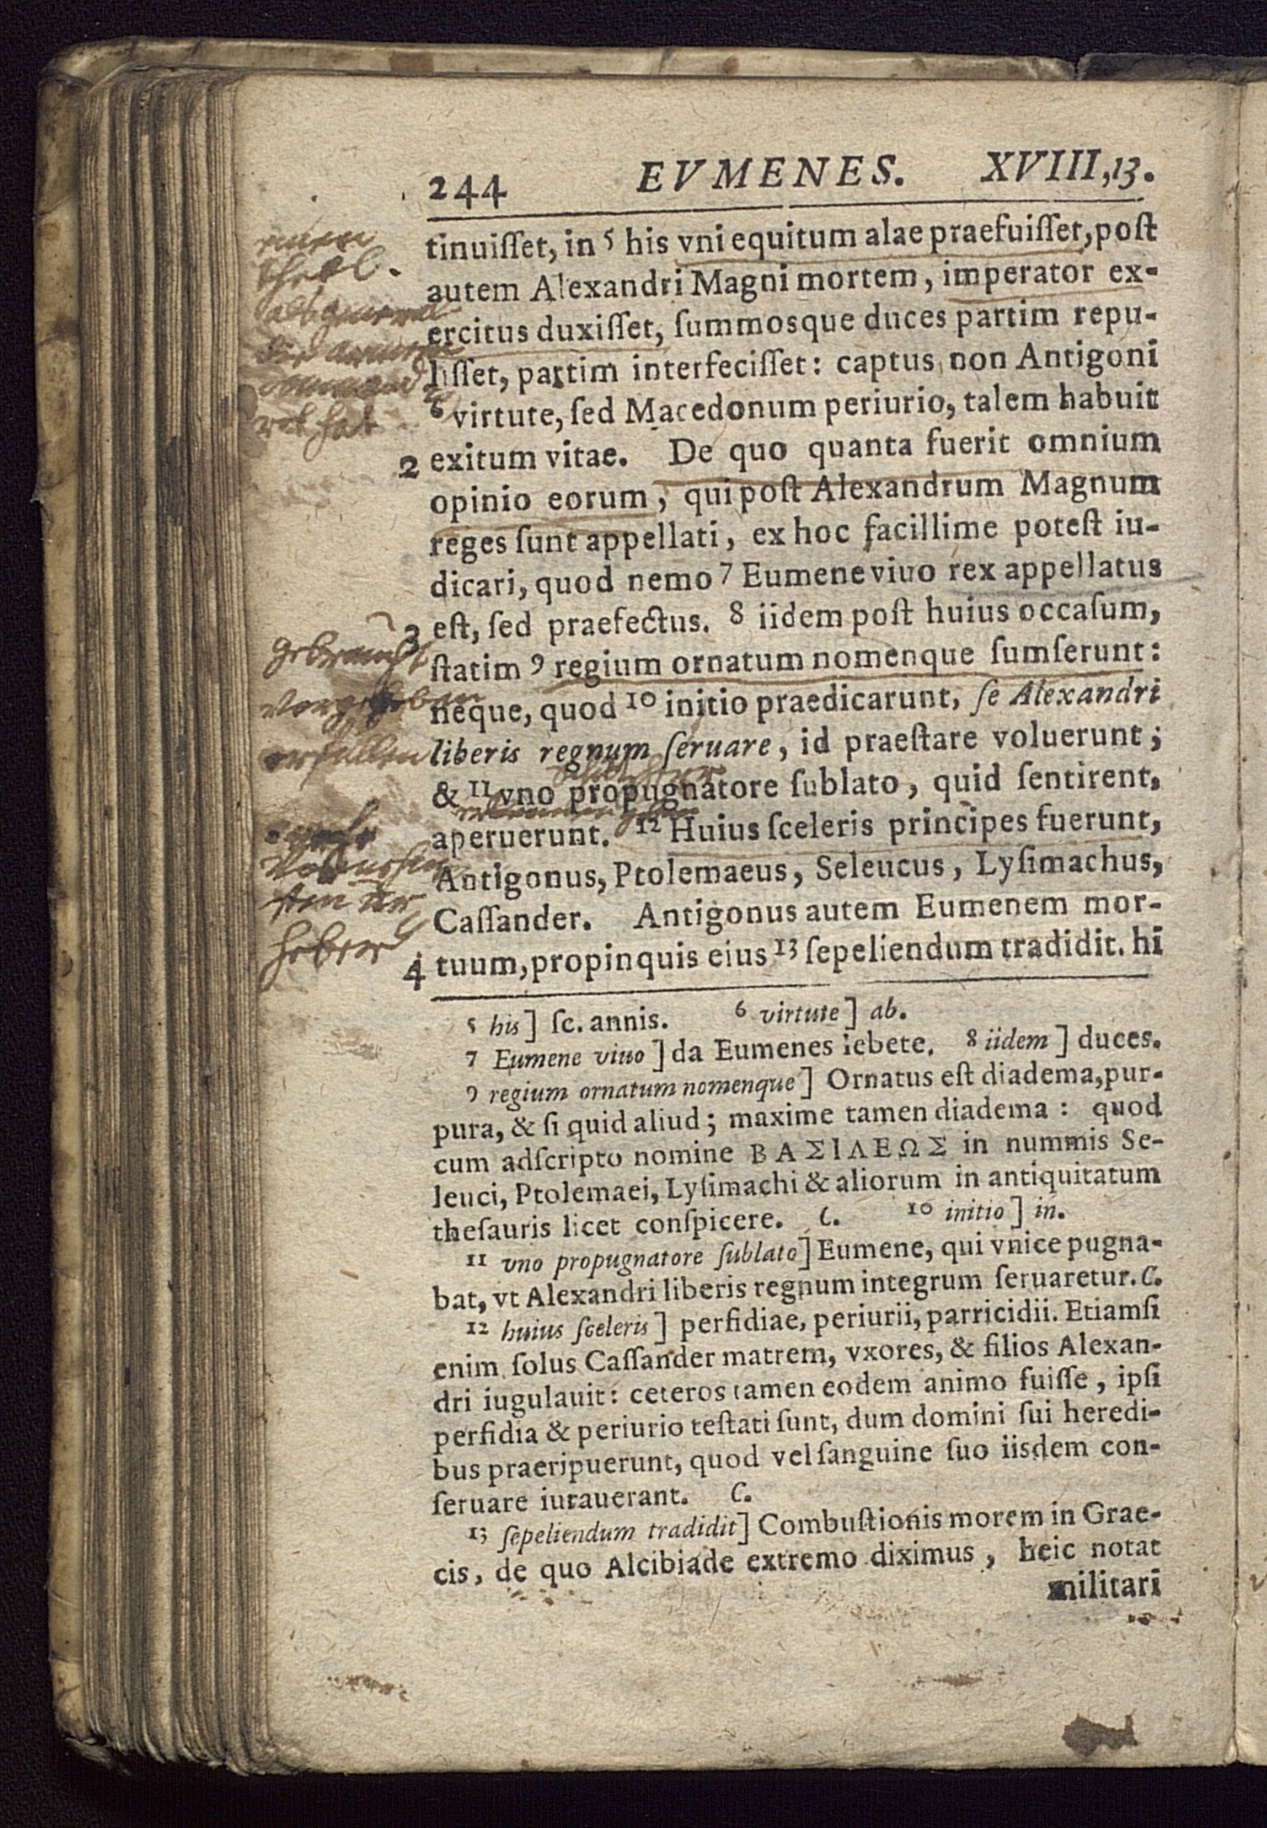 244 EVMENES. XVIII,13.
tinuiſſet, in 5 his vni equitum alae praefuiſſet, poſt
autem Alexandri Magni mortem, imperator ex-
ercitus duxiſſet, ſummosque duces partim repu-
liſſet, partim interfeciſſet: captus non Antigoni
6 virtute, ſed Macedonum periurio, talem habuit
2 exitum vitae. De quo quanta fuerit omnium
opinio eorum, qui poſt Alexandrum Magnum
reges ſunt appellati, ex hoc facillime poteſt iu-
dicari, quod nemo 7 Eumene viuo rex appellatus
3 eſt, ſed praefectus. 8 iidem poſt huius occaſum,
ſtatim 9 regium ornatum nomenque ſumſerunt:
neque, quod 10 initio praedicarunt, ſe Alexandri
liberis regnum ſeruare, id praeſtare voluerunt;
& 11 vno propugnatore ſublato, quid ſentirent,
aperuerunt. 12 Huius ſceleris principes fuerunt,
Antigonus, Ptolemaeus, Seleucus, Lyſimachus,
Caſſander. Antigonus autem Eumenem mor-
4 tuum, propinquis eius 13 ſepeliendum tradidit. hi
5 his] ſc. annis. 6 virtute] ab.
7 Eumene viuo] da Eumenes lebete. 8 iidem] duces.
9 regium ornatum nomenque] Ornatus eſt diadema, pur-
pura, & ſi quid aliud; maxime tamen diadema: quod
cum adſcripto nomine ΒΑΣΙΛΕΩΣ in nummis Se-
leuci, Ptolemaei, Lyſimachi & aliorum in antiquitatum
theſauris licet conſpicere. C. 10 initio] in.
11 vno propugnatore ſublato] Eumene, qui vnice pugna-
bat, vt Alexandri liberis regnum integrum ſeruaretur. C.
12 huius ſceleris] perfidiae, periurii, parricidii. Etiamſi
enim ſolus Caſſander matrem, vxores, & filios Alexan-
dri iugulauit: ceteros tamen eodem animo fuiſſe, ipſi
perfidia & periurio teſtati ſunt, dum domini ſui heredi-
bus praeripuerunt, quod vel ſanguine ſuo iisdem con-
ſeruare iurauerant. C.
13 ſepeliendum tradidit] Combuſtionis morem in Grae-
cis, de quo Alcibiade extremo diximus, heic notat
militari
gebraucht